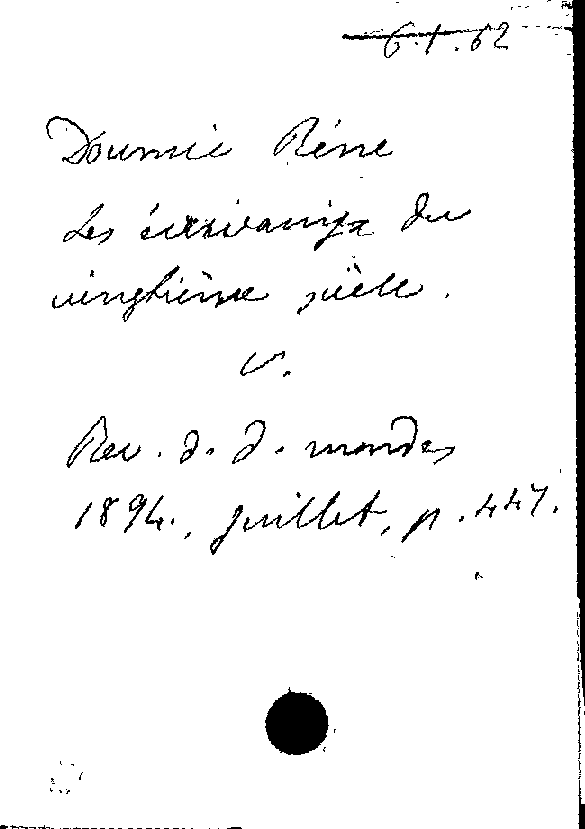 6.1.62
Doumic Réne
Les écrivains du
vingtième siècle.
v.
Rev. d. d. mondes
1894., juillet, p. 447.